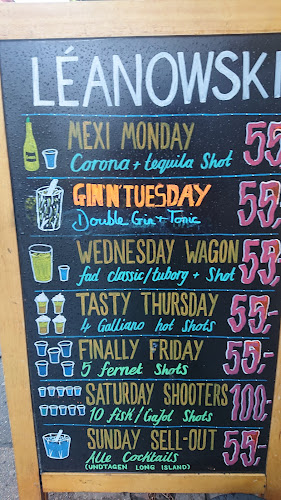 LÉANOWSKI
MEXI MONDAY 55
Corona + tequila Shot
GIN'N'TUESDAY 55,-
Double Gin + Tonic
WEDNESDAY WAGON 55,-
fad classic/tuborg + Shot
TASTY THURSDAY 55,-
4 Galliano hot Shots
FINALLY FRIDAY 55,-
5 fernet Shots
SATURDAY SHOOTERS 100,-
10 fisk/Gajol Shots
SUNDAY SELL-OUT 55,-
Alle Cocktails
(UNDTAGEN LONG ISLAND)